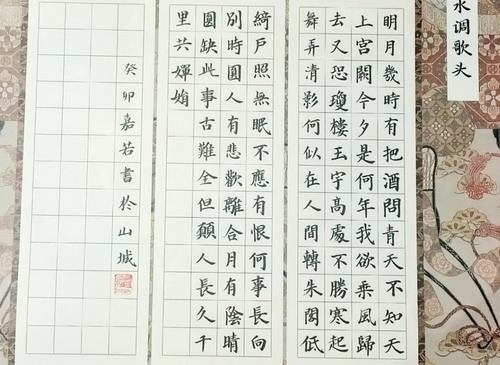 水调歌头
明月幾時有把酒問青天不知天
上宮闕今夕是何年我欲乘風歸
去又恐瓊樓玉宇高處不勝寒起
舞弄清影何似在人間轉朱閣低
綺戶照無眠不應有恨何事長向
別時圓人有悲歡離合月有陰晴
圓缺此事古難全但願人長久千
里共嬋娟
癸卯嘉若書於山城